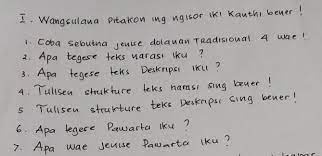 I. Wangsulana pitakon ing ngisor iki kanthi bener !
1. Coba sebutna jenise dolanan Tradisional 4 wae !
2. Apa tegese teks narasi iku ?
3. Apa tegese teks Deskripsi iku ?
4. Tulisen strukture teks narasi sing bener !
5 Tulisen strukture teks Deskripsi sing bener !
6. Apa tegese Pawarta iku ?
7. Apa wae jenise Pawarta iku ?